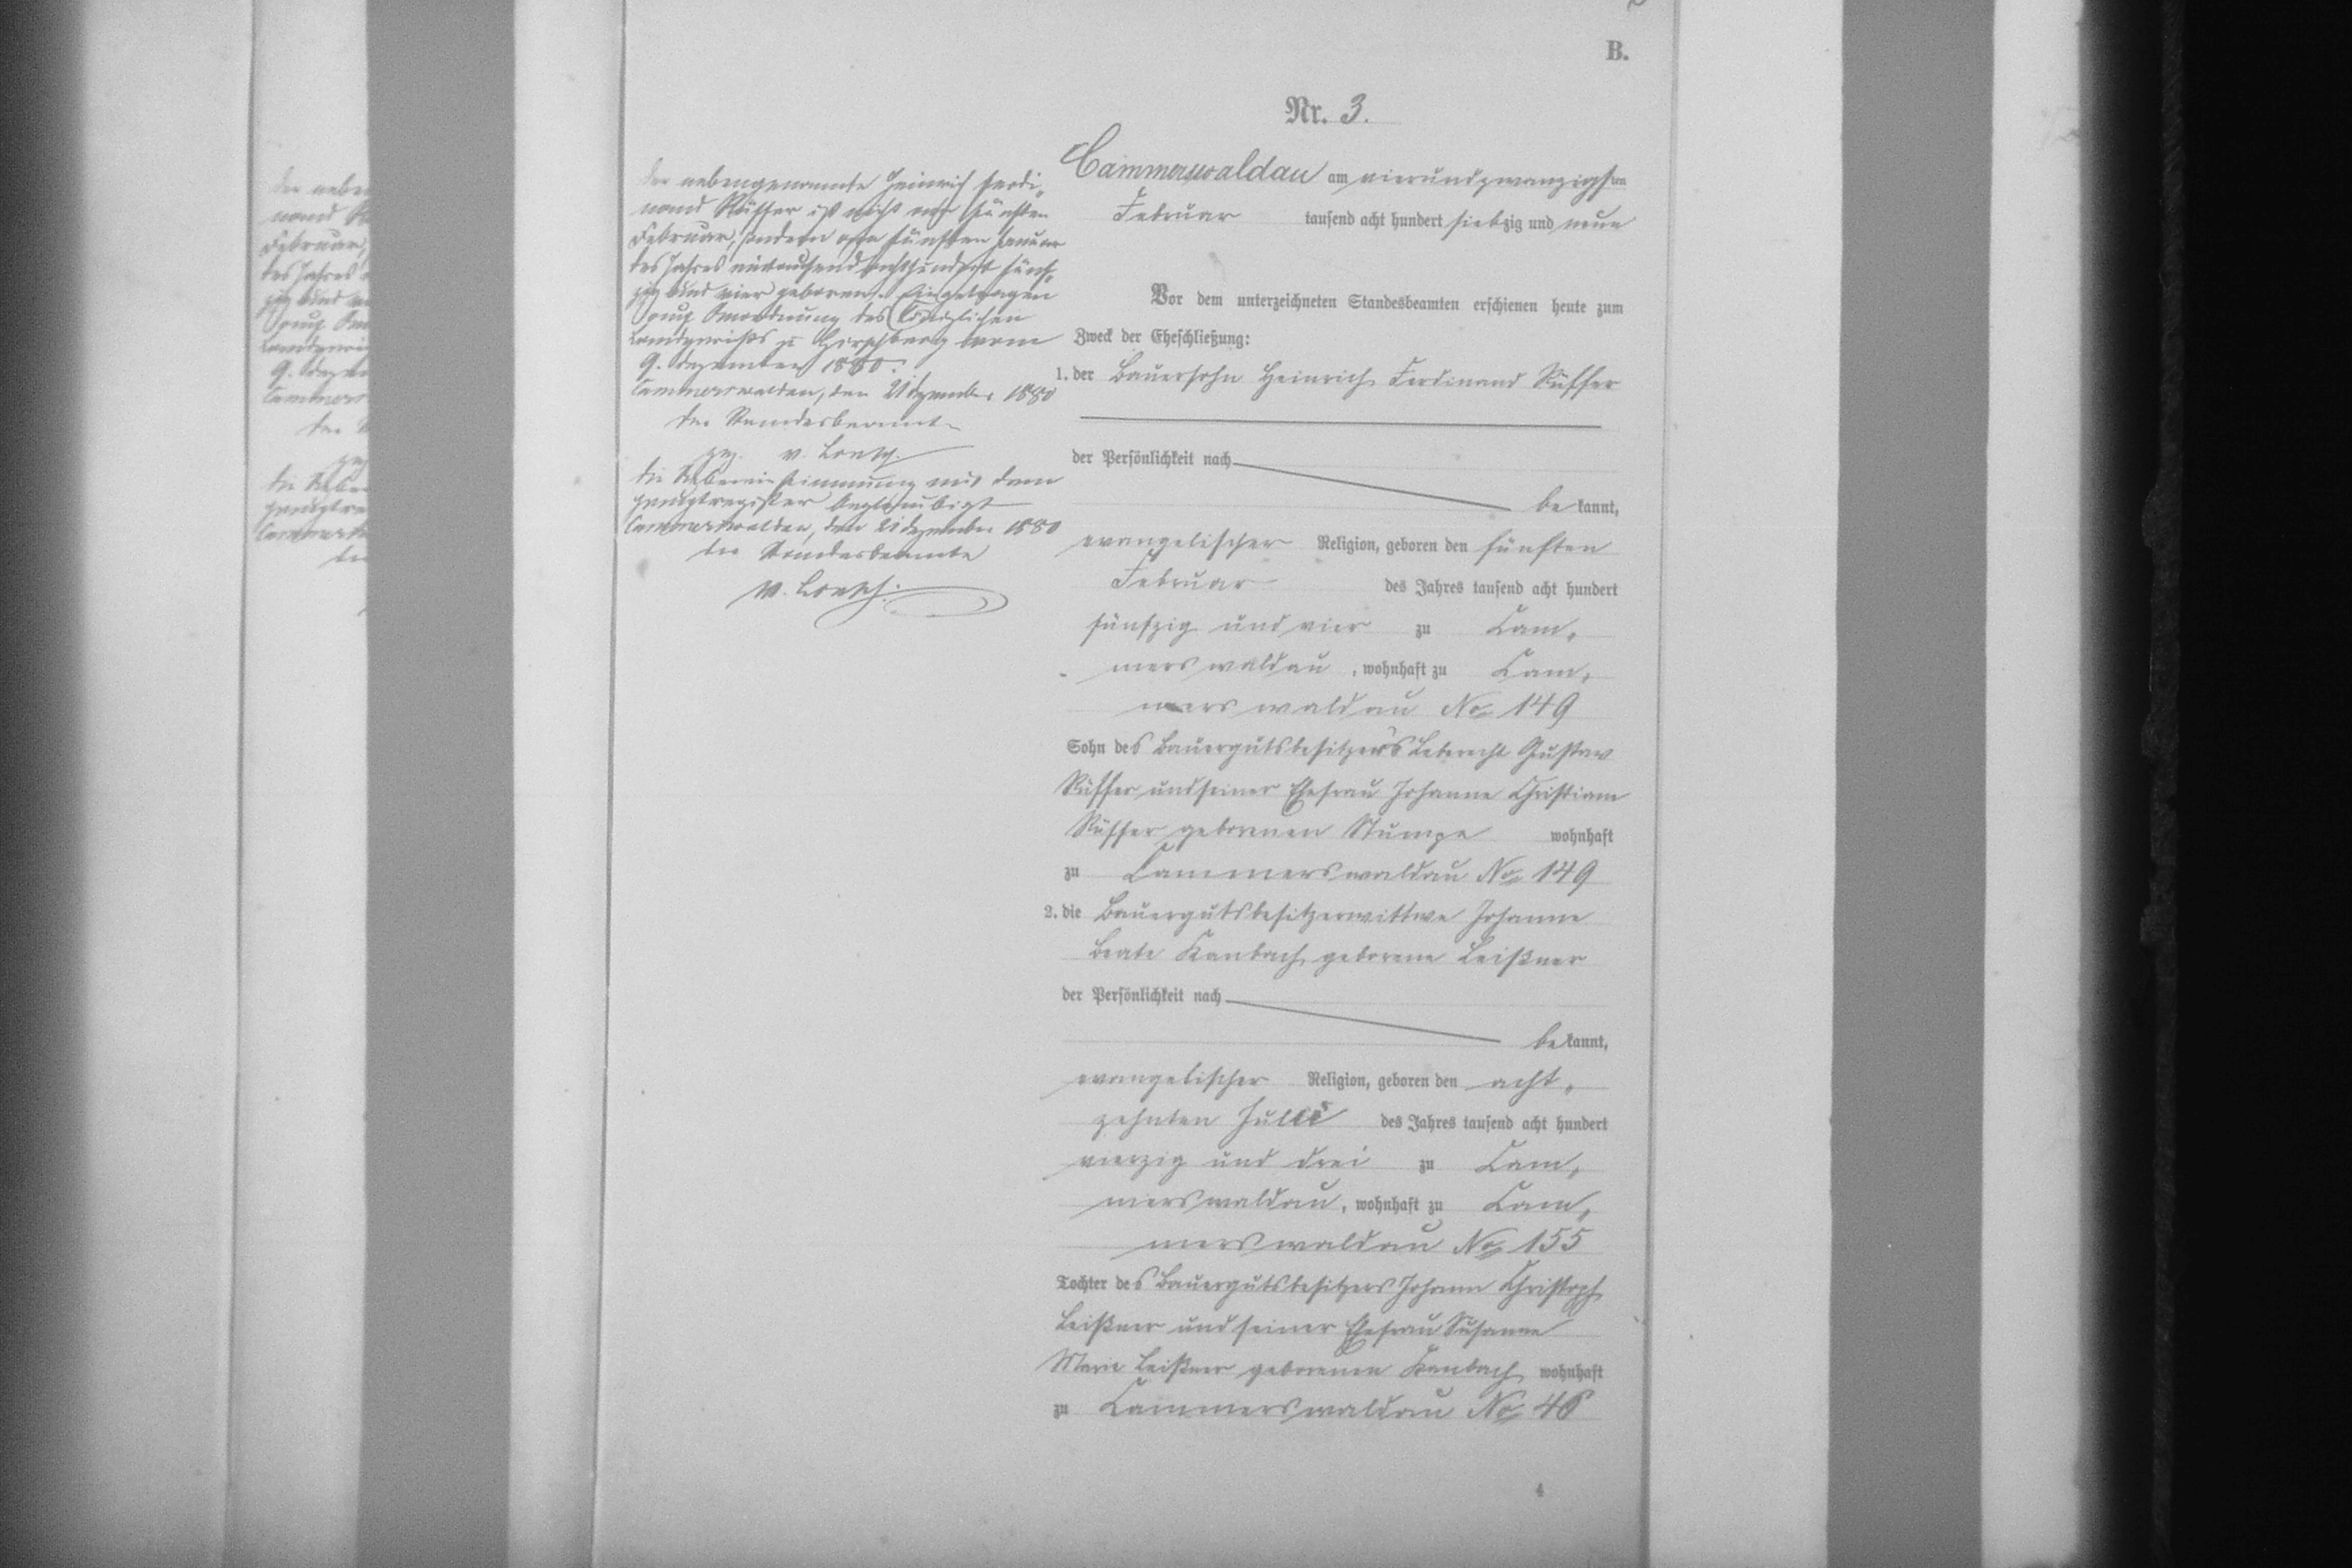 B.
Nr. 3.
Cammerswaldau am vierundzwanzigsten
Februar tausend acht hundert siebzig und neun
Vor dem unterzeichneten Standesbeamten erschienen heute zum
Zweck der Eheschließung:
1. der Bauersohn Heinrich Ferdinand Rüffer
der Persönlichkeit nach
be kannt,
evangelischer Religion, geboren den fünften
Februar des Jahres tausend acht hundert
fünfzig und vier zu Cam-
merswaldau, wohnhaft zu Cam-
merswaldau No 149
Sohn des Bauergutsbesitzers Leberecht Gustav
Rüffer und seiner Ehefrau Johanne Christiane
Rüffer geborenen Stumpe wohnhaft
zu Cammerswaldau No 149
2. die Bauergutsbesitzerwittwe Johanne
Beate Kambach geborene Leißner
der Persönlichkeit nach
be kannt,
evangelischer Religion, geboren den acht-
zehnten Juli des Jahres tausend acht hundert
vierzig und drei zu Cam-
merswaldau, wohnhaft zu Cam-
merswaldau No 155
Tochter des Bauergutsbesitzers Johann Christoph
Leißner und seiner Ehefrau Susanne
Marie Leißner geborenen Kambach wohnhaft
zu Cammerswaldau No 46
4
Der nebengenannte Heinrich Ferdi-
nand Rüffer ist nicht am fünften
Februar, sondern am fünften Januar
des Jahres eintausend achthundert fünf-
zig und vier geboren. Eingetragen
auf Anordnung des Königlichen
Landgerichts zu Hirschberg vom
9. Dezember 1880.
Cammerswaldau, den 21 Dezember 1880
Der Standesbeamte
gez. v.
Die Uebereinstimmung mit dem
Hauptregister beglaubigt
Cammerswaldau, den 21 Dezember 1880
Der Standesbeamte
v.